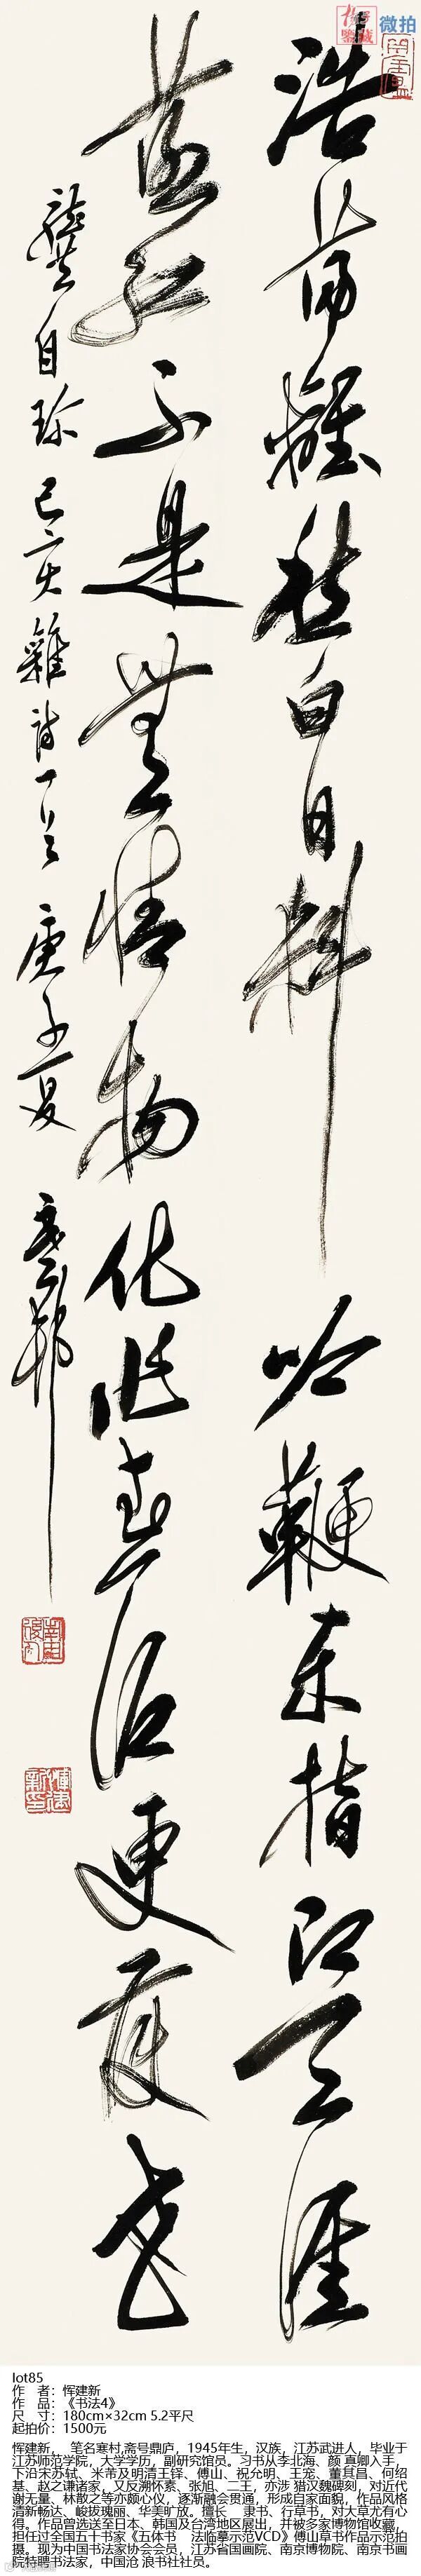 浩蕩離愁白日斜吟鞭东指即天涯
落红不是無情物化作春泥更護花
龔自珍己亥雜詩一首庚子夏寒邨
微拍
lot85
作　者：恽建新
作　品：《书法4》
尺　寸：180cm×32cm 5.2平尺
起拍价：1500元
恽建新，　笔名寒村,斋号鼎庐，1945年生，汉族，江苏武进人，毕业于
江苏师范学院，大学学历，副研究馆员。习书从李北海、颜 真卿入手，
下沿宋苏轼、米芾及明清王铎、傅山、祝允明、王宠、董其昌、何绍
基、赵之谦诸家，又反溯怀素、张旭、二王，亦涉 猎汉魏碑刻，对近代
谢无量、林散之等亦颇心仪，逐渐融会贯通，形成自家面貌，作品风格
清新畅达、峻拔瑰丽、华美旷放。擅长　隶书、行草书，对大草尤有心
得。作品曾选送至日本、韩国及台湾地区展出，并被多家博物馆收藏，
担任过全国五十书家《五体书　法临摹示范VCD》傅山草书作品示范拍
摄。现为中国书法家协会会员，江苏省国画院、南京博物院、南京书画
院特聘书法家，中国沧 浪书社社员。